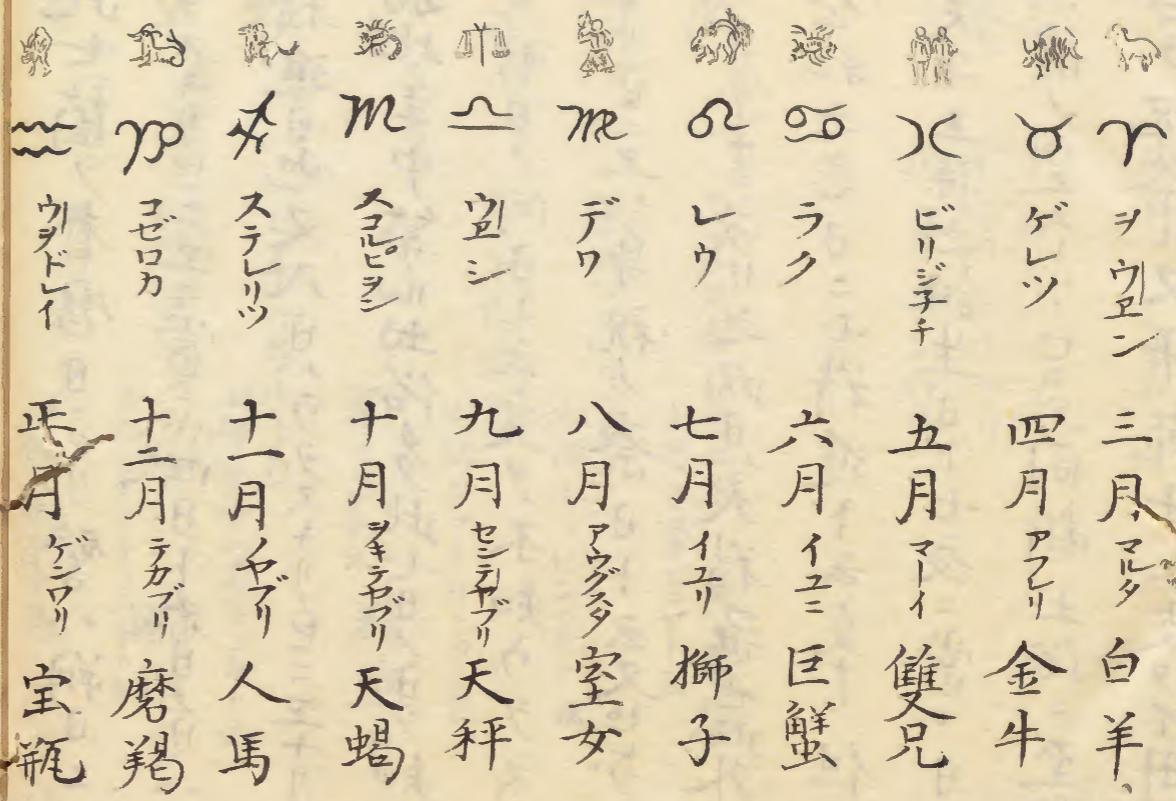 ♈ ヲウヱン 三月 マルタ 白羊、
♉ ゲレツ 四月 アフレリ 金牛
ビリジ子チ 五月 マーイ 雙兄
♋ ラク 六月 イユニ 巨蟹
♌ レウ 七月 イユリ 獅子
♍ デワ 八月 アウグスタ 室女
♎ ウヱシ 九月 センテヤブリ 天秤
♏ スコルピヲン 十月 ヲキテヤブリ 天蝎
♐ ステレリツ 十一月 ノヤブリ 人馬
♑ コゼロカ 十二月 テカブリ 磨羯
♒ ウヲドレイ 正月 ゲンワリ 宝瓶